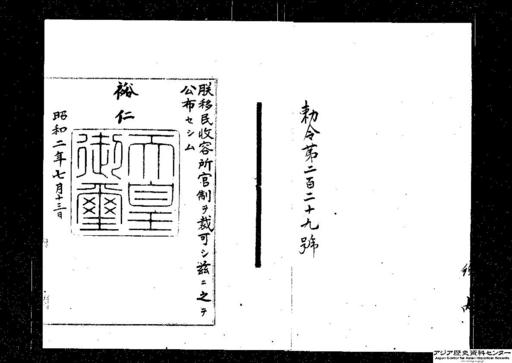 勅令第二百二十九號
朕移民收容所官制ヲ裁可シ茲ニ之ヲ
公布セシム
裕仁
天皇
御璽
昭和二年七月十三日
アジア歴史資料センター
Japan Center for Asian Historical Records